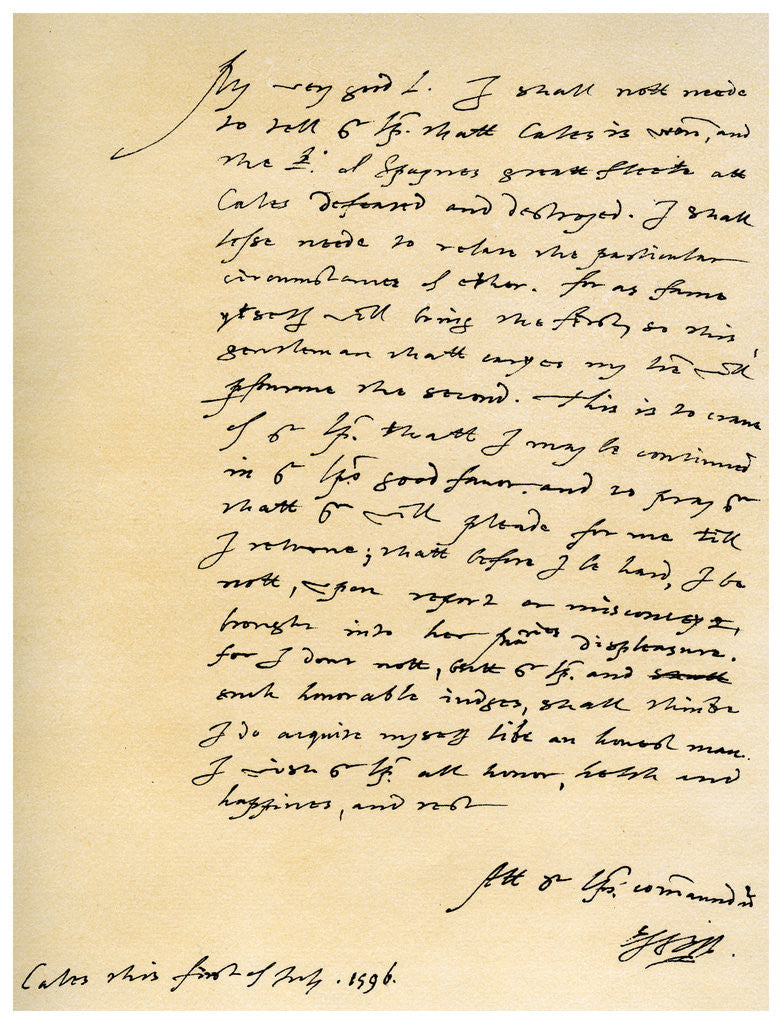 My very good L. I shall nott neede
to tell yr Lp. thatt Cales is wonn, and
the K. of Spaynes greatt fleete att
Cales defeated and destroyed. I shall
lesse neede to relate the particular
circumstances of ether. for as fame
ytself will bring the first, so this
gentleman thatt caryes my lre will
pfourme the second. This is to crave
of yr Lp. thatt I may be continued
in yr Lps good favor. and to pray yr
thatt yr will pleade for me till
I retorne; thatt before I be hard, I be
nott, upon report or misconceyt,
brought into her maties displeasure.
for I dout nott, butt yr Lp. and shall
such honorable iudges, shall thinke
I do acquite myself like an honest man.
I wish yr Lp. all honor, helth and
happines, and rest
Att yr Lps. comaundmt
Essex.
Cales this first of July. 1596.